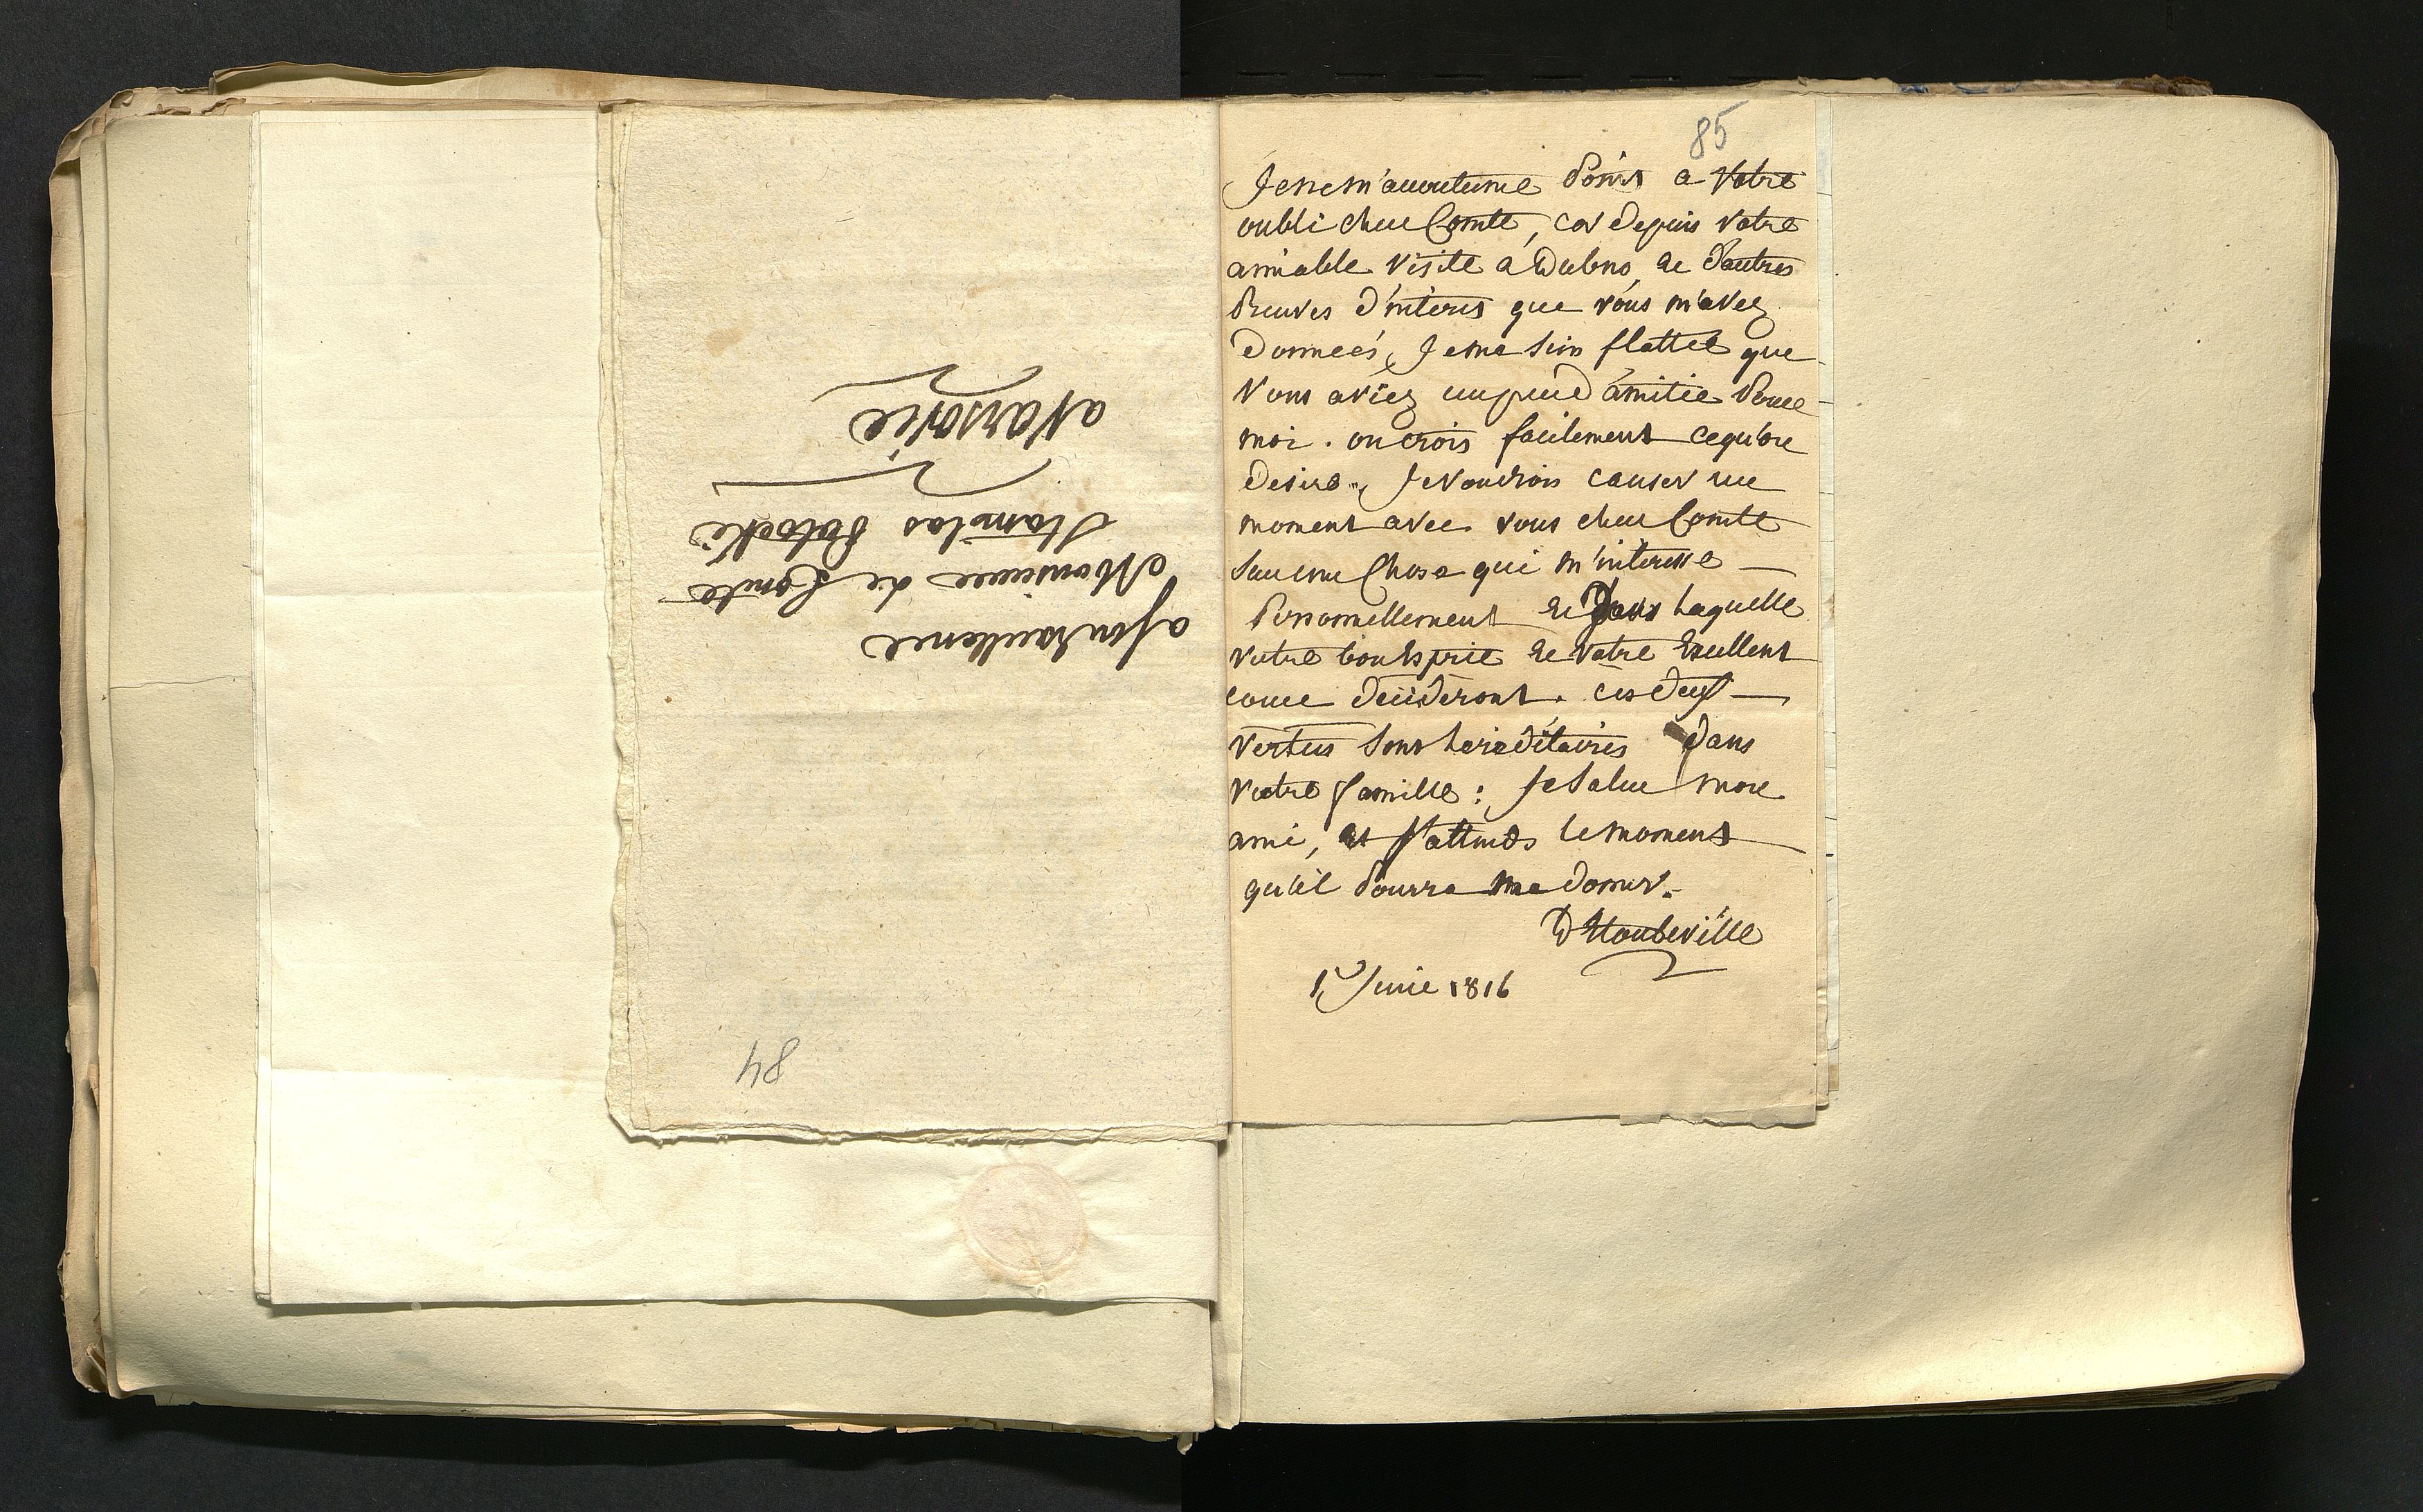 a son Excellence
Monsieur le Comte
Stanislas Potocki
a Varsovie
84
85
Je ne m'accoutume point a votre
oubli cher Comte, car depuis votre
amiable visite a Dubno, et d'autres
preuves d'intèret que vous m'avez
donneés, Je me suis flatteé que
vous aviez un peu d'amitie pour
moi. on crois facilement ce qu'on
desire. Je voudrois causer un
moment avec vous cher Comte
sur une Chose qui m'interesse
personnellement et dans laquelle
votre bon Esprit et votre Excellent
coeur decideront. ces deux
vertus sont hereditaires dans
votre famille: Je salue mon
ami, et J'attends le moment
qu'il pourra me donner.
1 Juin 1816